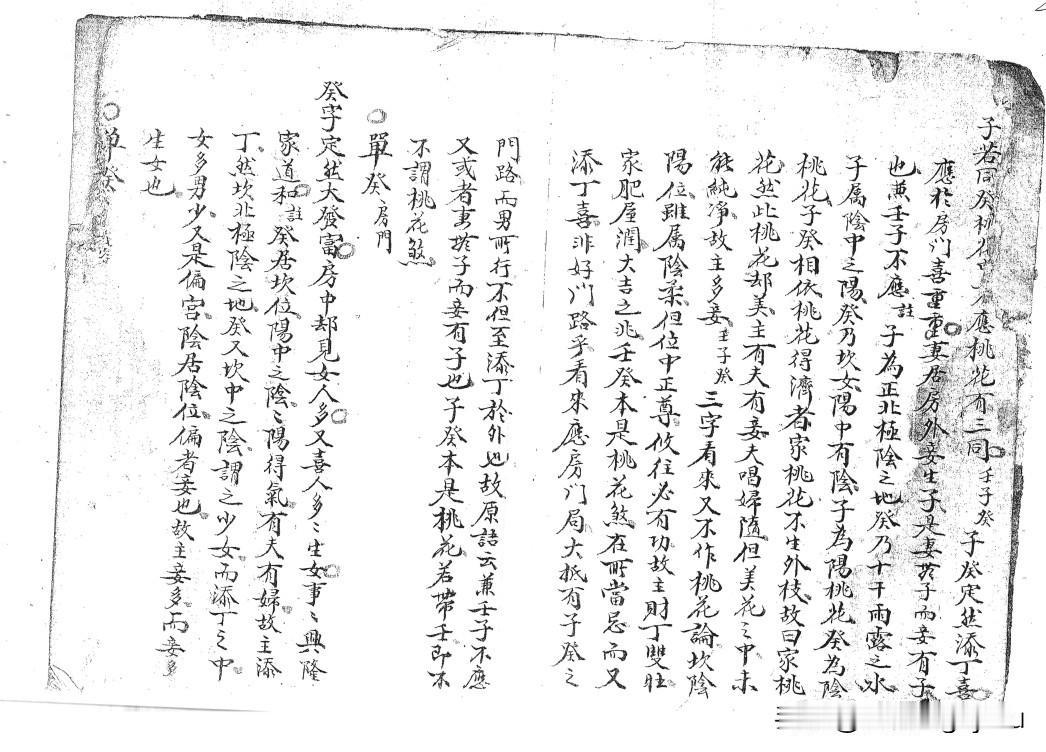 子若同癸桃花 不應桃花有三同壬子癸 子癸定然添丁喜
應於房門喜重重妻居房外妾生子是妻無子而妾有子
也兼壬子不應註 子為正北極陰之地癸乃十干雨露之水
子属陰中之陽癸乃坎女陽中有陰子為陽桃花癸為陰
桃花子癸相依桃花得濟者家桃花不生外枝故曰家桃
花然此桃花却美主有夫有妾夫唱婦隨但美花之中未
能純净故主多妾壬子癸 三字看來又不作桃花論坎陰
陽位雖属陰柔但位中正尊攸往必有功故主財丁雙旺
家肥屋潤大吉之兆壬癸本是桃花煞在所當忌而又
添丁喜非好门路乎看來應房门局大抵有子癸之
門路而男所行不但至添丁於外也故原語云兼壬子不應
又或者妻無子而妾有子也子癸本是桃花若帶壬即不
不謂桃花煞
單癸房門
癸字定然大發富房中却見女人多又喜人多々生女事々興隆
家道和註 癸居坎位陽中之陰々陽得氣有夫有婦故主添
丁然坎北極陰之地癸又坎中之陰謂之少女而添丁之中
女多男少又是偏宫陰居陰位偏者妾也故主妾多而妾多
生女也
單癸